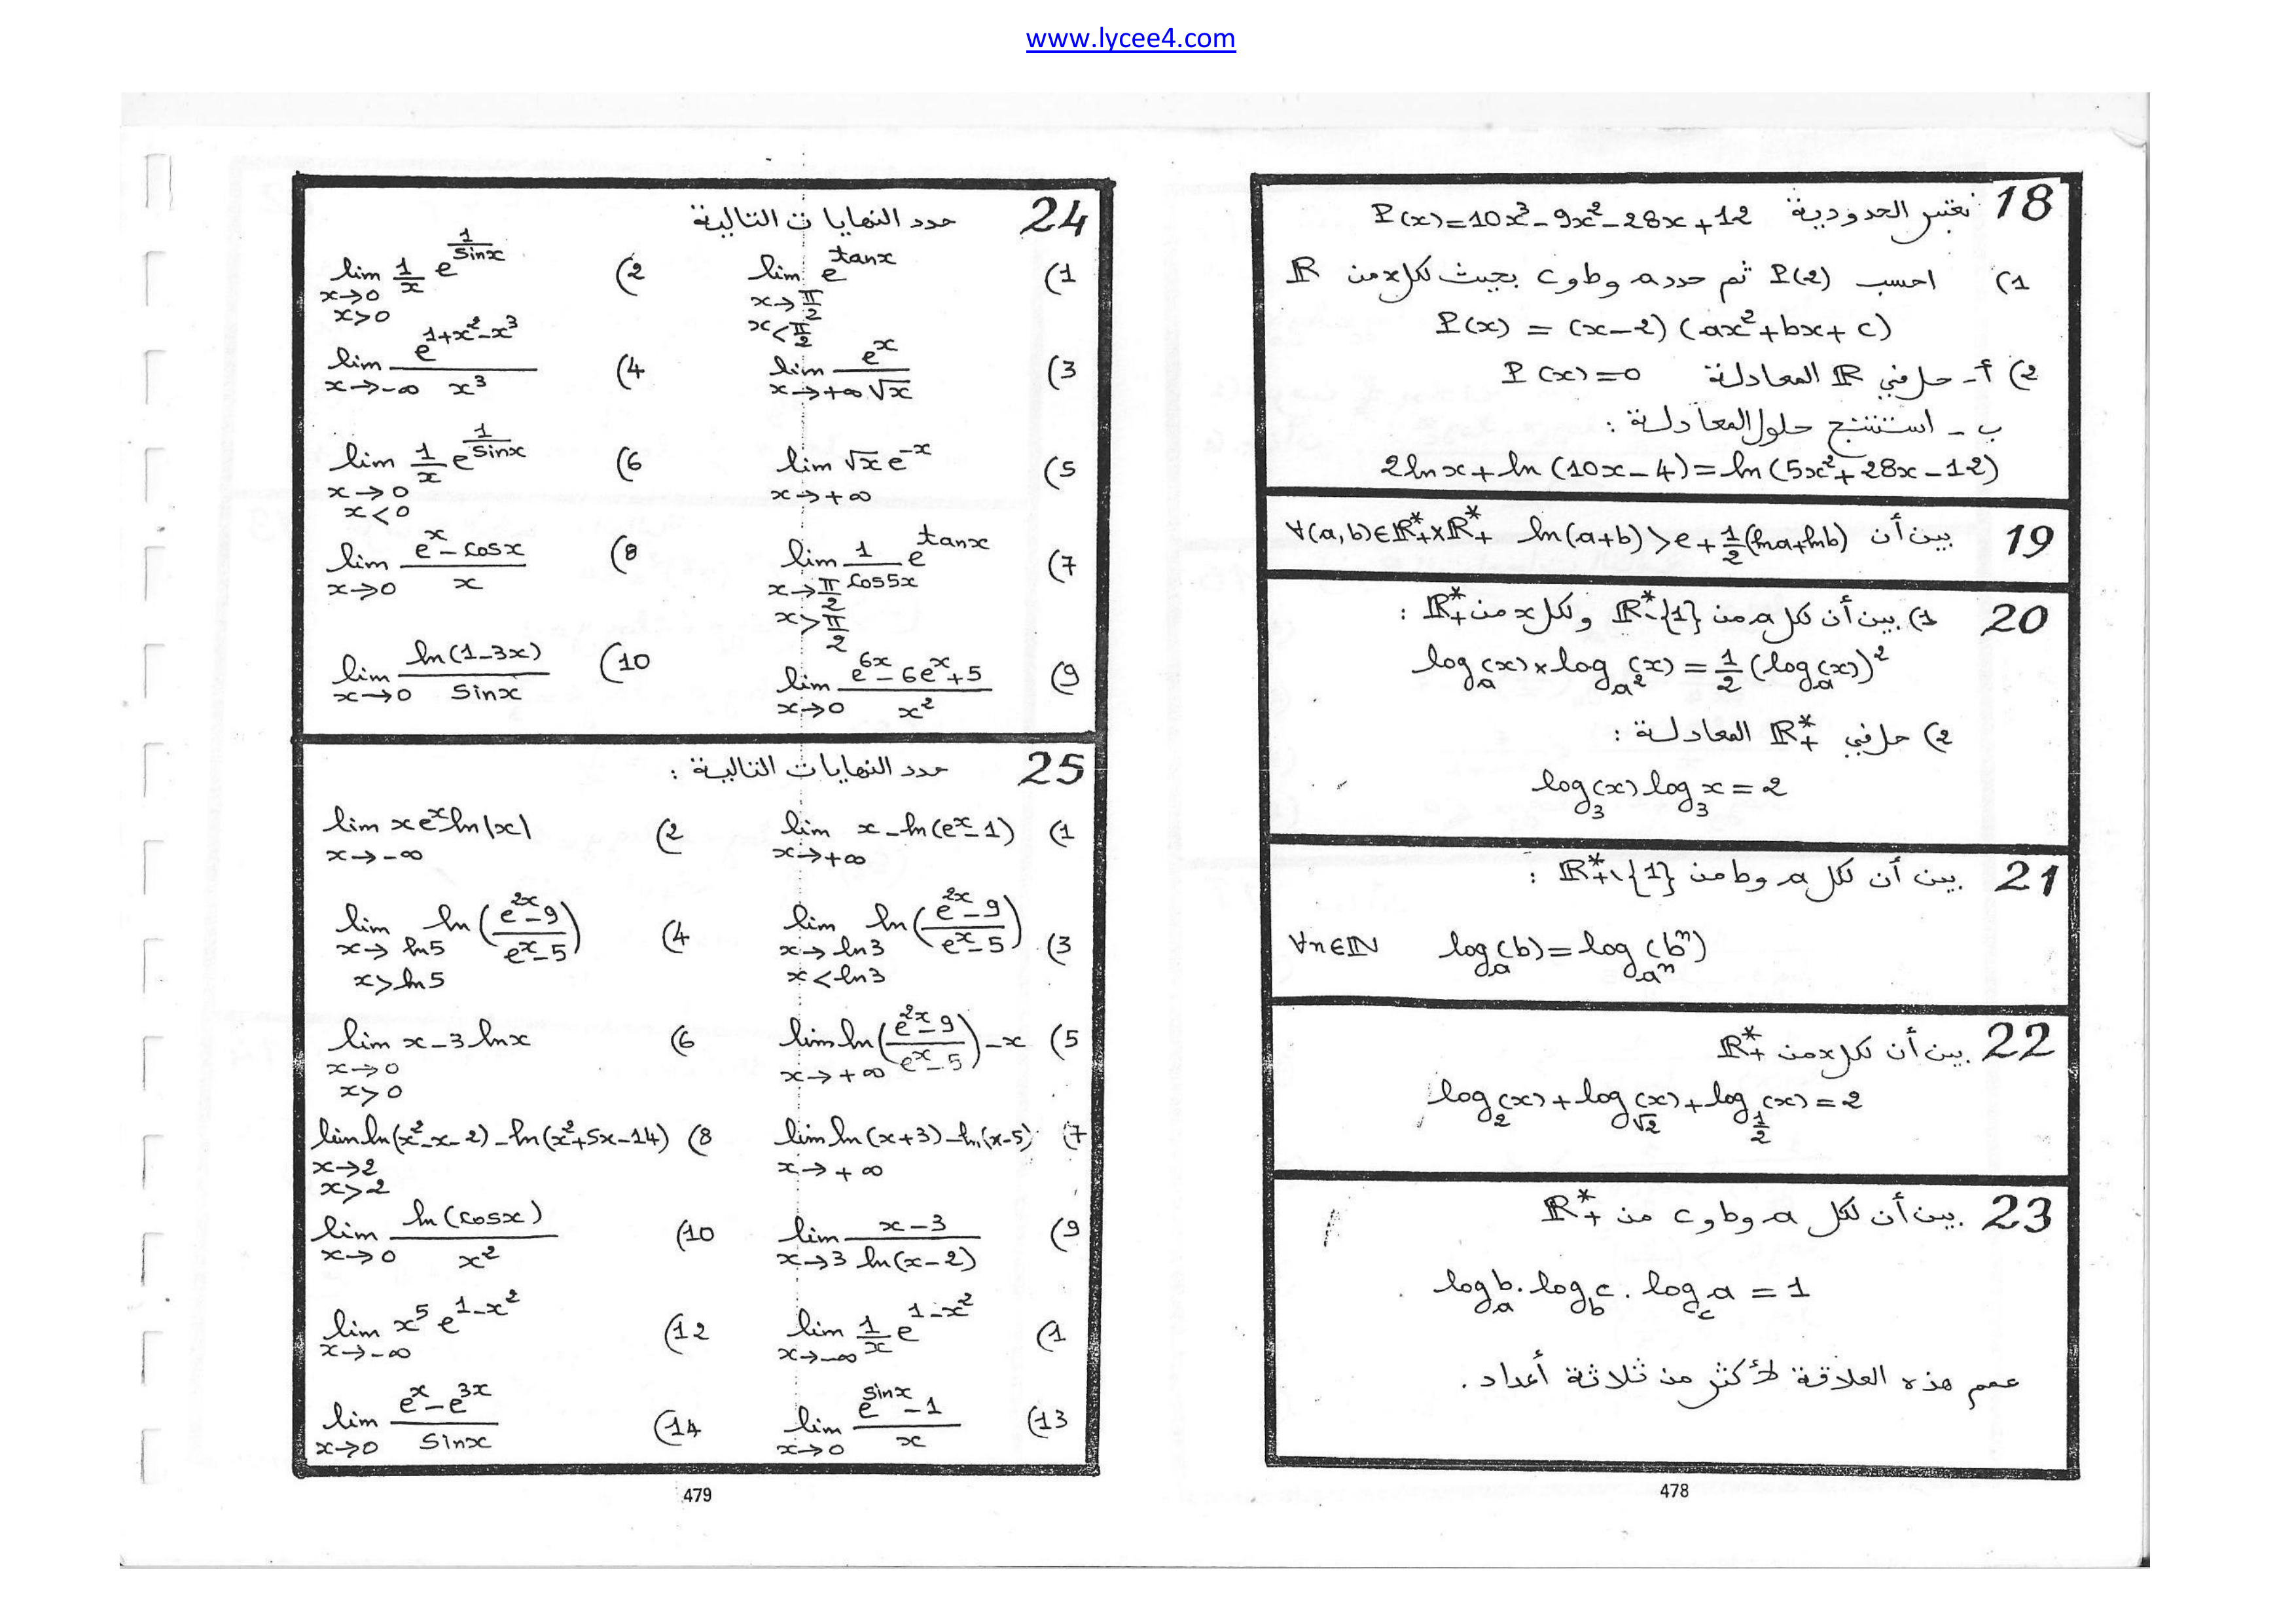 www.lycee4.com
18 نعتبر الحدودية P(x)=10x³-9x²-28x+12
1) احسب P(2) ثم حدد a و b و c بحيث لكل x من ℝ
P(x) = (x-2)(ax²+bx+c)
2) أ- حل في ℝ المعادلة P(x)=0
ب- استنتج حلول المعادلة :
2lnx+ln(10x-4)=ln(5x²+28x-12)
19 بين أن ∀(a,b)∈ℝ*₊×ℝ*₊ ln(a+b)>e+1/2(lna+lnb)
20 1) بين أن كل a من ℝ*₊-{1} ولكل x من ℝ*₊ :
log_a(x)×log_a²(x)=1/2(log_a(x))²
2) حل في ℝ*₊ المعادلة :
log_3(x)log_3 x=2
21 بين أن لكل a و b من ℝ*₊\{1} :
∀n∈ℕ log_a(b)=log_aⁿ(bⁿ)
22 بين أن لكل x من ℝ*₊
log_2(x)+log_√2(x)+log_1/2(x)=2
23 بين أن لكل a و b و c من ℝ*₊
log_a b.log_b c.log_c a=1
عمم هذه العلاقة لأكثر من ثلاثة أعداد.
478
24 حدد النهايات التالية
1) lim x→π/2 x<π/2 e^tanx
2) lim x→0 x>0 1/x e^(1/sinx)
3) lim x→+∞ e^x/√x
4) lim x→-∞ e^(1+x²-x³)/x³
5) lim x→+∞ √x e^-x
6) lim x→0 x<0 1/x e^(1/sinx)
7) lim x→π/2 x>π/2 1/cos5x e^tanx
8) lim x→0 (e^x-cosx)/x
9) lim x→0 (e^6x-6e^x+5)/x²
10) lim x→0 ln(1-3x)/sinx
25 حدد النهايات التالية :
1) lim x→+∞ x-ln(e^x-1)
2) lim x→-∞ xe^x ln|x|
3) lim x→ln3 x<ln3 ln((e^2x-9)/(e^x-5))
4) lim x→ln5 x>ln5 ln((e^2x-9)/(e^x-5))
5) lim x→+∞ ln((e^2x-9)/(e^x-5))-x
6) lim x→0 x>0 x-3lnx
7) lim x→+∞ ln(x+3)-ln(x-5)
8) lim x→2 x>2 ln(x²-x-2)-ln(x²+5x-14)
9) lim x→3 (x-3)/ln(x-2)
10) lim x→0 ln(cosx)/x²
1) lim x→-∞ 1/x e^(1-x²)
12) lim x→-∞ x⁵e^(1-x²)
13) lim x→0 (e^sinx-1)/x
14) lim x→0 (e^x-e^3x)/sinx
479